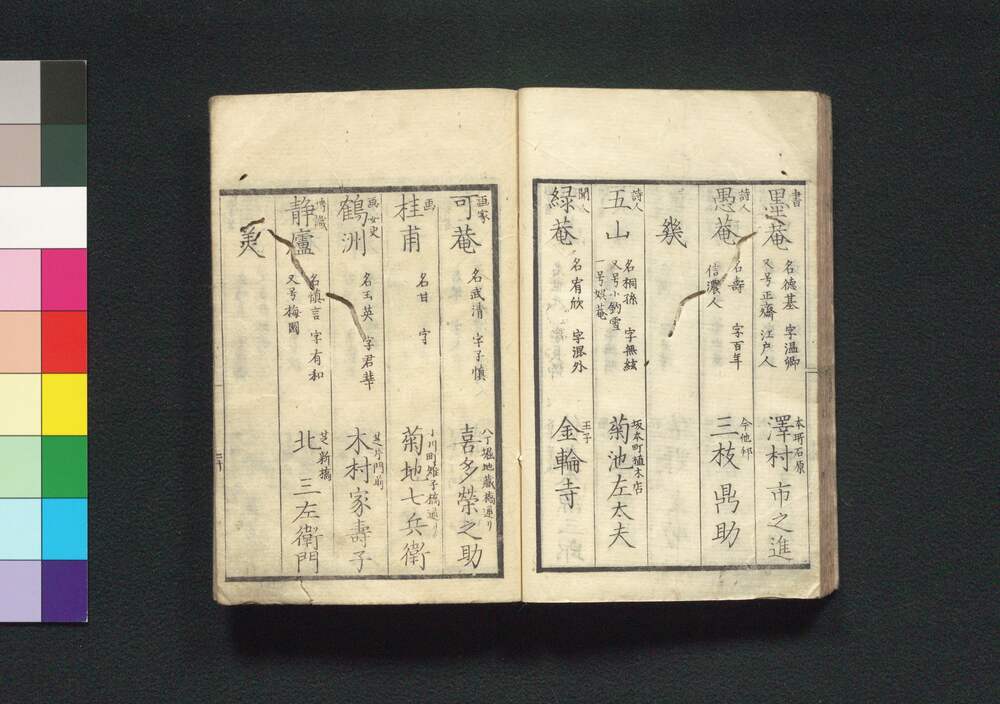 書
墨菴
名德基 字温卿
又号正齋 江戸人
本所石原
澤村市之進
詩人
愚菴
名壽 字百年
信濃人
今他邦
三枝鼎助
幾
詩人
五山
名桐孫 字無絃
又号小釣雪
一号娯菴
坂本町植木店
菊池左太夫
聞人
緑菴
名宥欣 字混外
王子
金輪寺
画家
可菴
名武清 字子慎
八丁堀地蔵橋通り
喜多榮之助
画
桂甫
名甘 字
小川町雉子橋通り
菊地七兵衛
画女史
鶴洲
名玉英 字君華
芝片門前
木村家壽子
博識
静廬
名慎言 字有和
又号梅園
芝新橋
北三左衛門
美